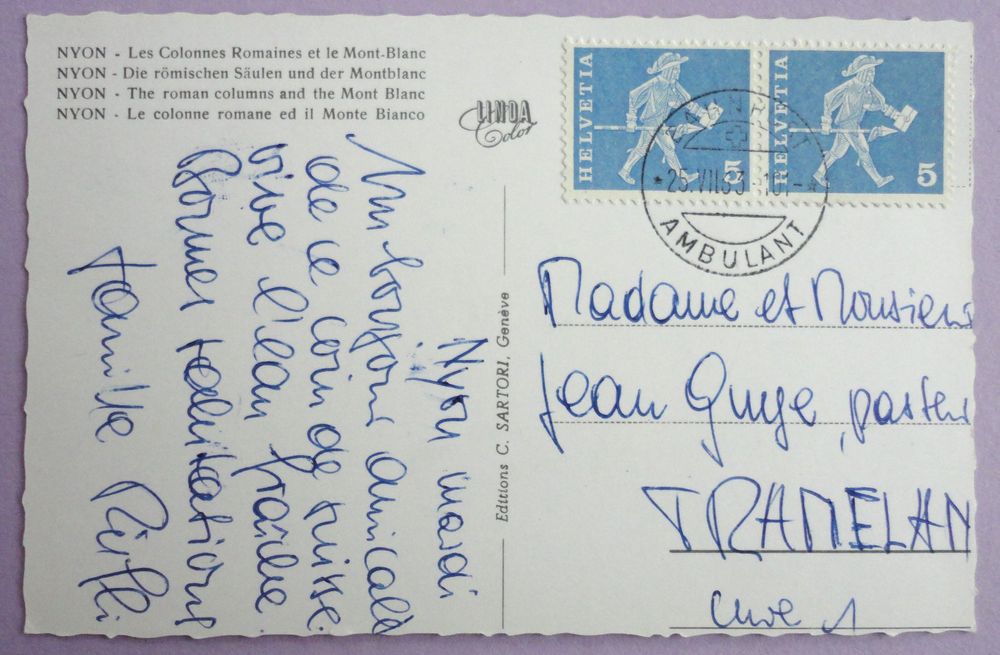 NYON - Les Colonnes Romaines et le Mont-Blanc
NYON - Die römischen Säulen und der Montblanc
NYON - The roman columns and the Mont Blanc
NYON - Le colonne romane ed il Monte Bianco
LINDA
Color
Nyon mardi
Un bonjour amical
de ce coin de suisse.
vive l'élan
Bonnes
famille
Editions C. SARTORI, Genève
HELVETIA
5
HELVETIA
5
AMBULANT
Madame et Monsieur
Jean Guye, pasteur
TRAMELAN
cure 1